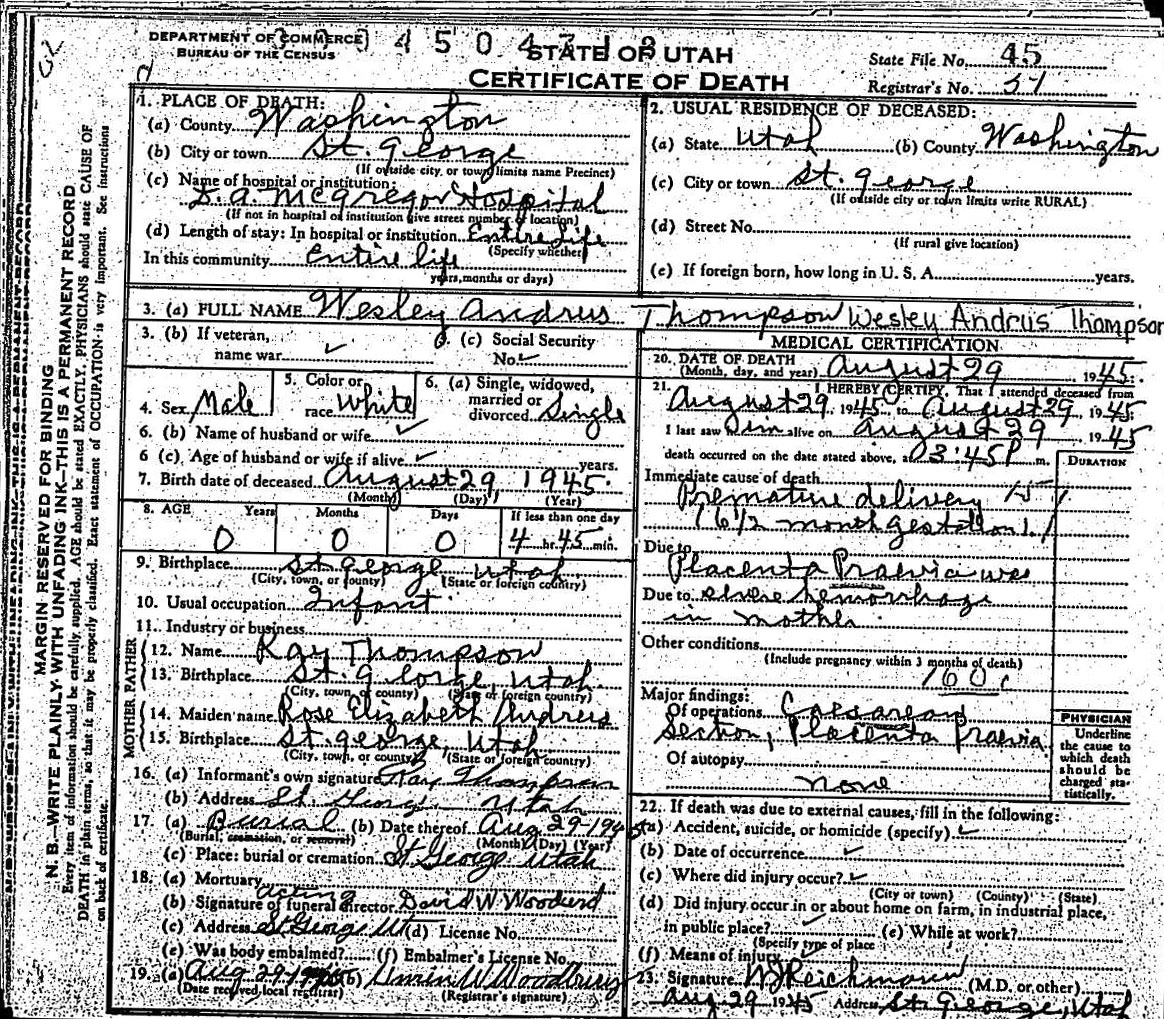 DEPARTMENT OF COMMERCE
BUREAU OF THE CENSUS
STATE OF UTAH
CERTIFICATE OF DEATH
State File No. 45
Registrar's No. 57
MARGIN RESERVED FOR BINDING
N. B.—WRITE PLAINLY WITH UNFADING INK—THIS IS A PERMANENT RECORD
Every item of information should be carefully supplied. AGE should be stated EXACTLY. PHYSICIANS should state CAUSE OF
DEATH in plain terms, so that it may be properly classified. Exact statement of OCCUPATION is very important. See instructions
on back of certificate.
1. PLACE OF DEATH:
(a) County Washington
(b) City or town St. George
(If outside city or town limits name Precinct)
(c) Name of hospital or institution:
D. A. McGregor Hospital
(If not in hospital or institution give street number or location)
(d) Length of stay: In hospital or institution Entire life
(Specify whether
In this community Entire life
years, months or days)
2. USUAL RESIDENCE OF DECEASED:
(a) State Utah (b) County Washington
(c) City or town St. George
(If outside city or town limits write RURAL)
(d) Street No.
(If rural give location)
(e) If foreign born, how long in U. S. A. years.
3. (a) FULL NAME Wesley Andrus Thompson Wesley Andrus Thompson
3. (b) If veteran,
name war ✓
3. (c) Social Security
No. ✓
4. Sex Male
5. Color or
race White
6. (a) Single, widowed,
married or
divorced Single
6. (b) Name of husband or wife ✓
6 (c) Age of husband or wife if alive ✓ years.
7. Birth date of deceased August 29 1945
(Month) (Day) (Year)
8. AGE Years Months Days If less than one day
0 0 0 4 hr. 45 min.
9. Birthplace St George Utah
(City, town, or county) (State or foreign country)
10. Usual occupation Infant
11. Industry or business
FATHER
12. Name Ray Thompson
13. Birthplace St. George, Utah
(City, town, or county) (State or foreign country)
MOTHER
14. Maiden name Rose Elizabeth Andrus
15. Birthplace St. George, Utah
(City, town, or county) (State or foreign country)
16. (a) Informant's own signature Ray Thompson
(b) Address St. George Utah
17. (a) Burial (b) Date thereof Aug 29-1945
(Burial, cremation, or removal) (Month) (Day) (Year)
(c) Place: burial or cremation St George Utah
18. (a) Mortuary
acting
(b) Signature of funeral director David W Woodward
(c) Address St George Ut (d) License No.
(e) Was body embalmed? (f) Embalmer's License No.
19. (a) Aug 29 (b) Woodbury
(Date received local registrar) (Registrar's signature)
MEDICAL CERTIFICATION
20. DATE OF DEATH August 29 1945
(Month, day, and year)
21. I HEREBY CERTIFY, That I attended deceased from
August 29, 1945 to August 29, 1945
I last saw him alive on August 29, 1945
death occurred on the date stated above, at 3:45 P m.
DURATION
Immediate cause of death
Premature delivery
(6 1/2 month gestation)
Due to
Placenta Praevia
Due to severe hemorrhage
in mother
Other conditions
(Include pregnancy within 3 months of death)
160c
Major findings:
Of operations Caesarean
Section, Placenta Praevia
Of autopsy
none
PHYSICIAN
Underline
the cause to
which death
should be
charged sta-
tistically.
22. If death was due to external causes, fill in the following:
(a) Accident, suicide, or homicide (specify) ✓
(b) Date of occurrence ✓
(c) Where did injury occur? ✓
(City or town) (County) (State)
(d) Did injury occur in or about home on farm, in industrial place,
in public place? ✓ (e) While at work?
(Specify type of place
(f) Means of injury
23. Signature W J Reichmann (M.D. or other)
Aug 29 1945 Address St. George, Utah